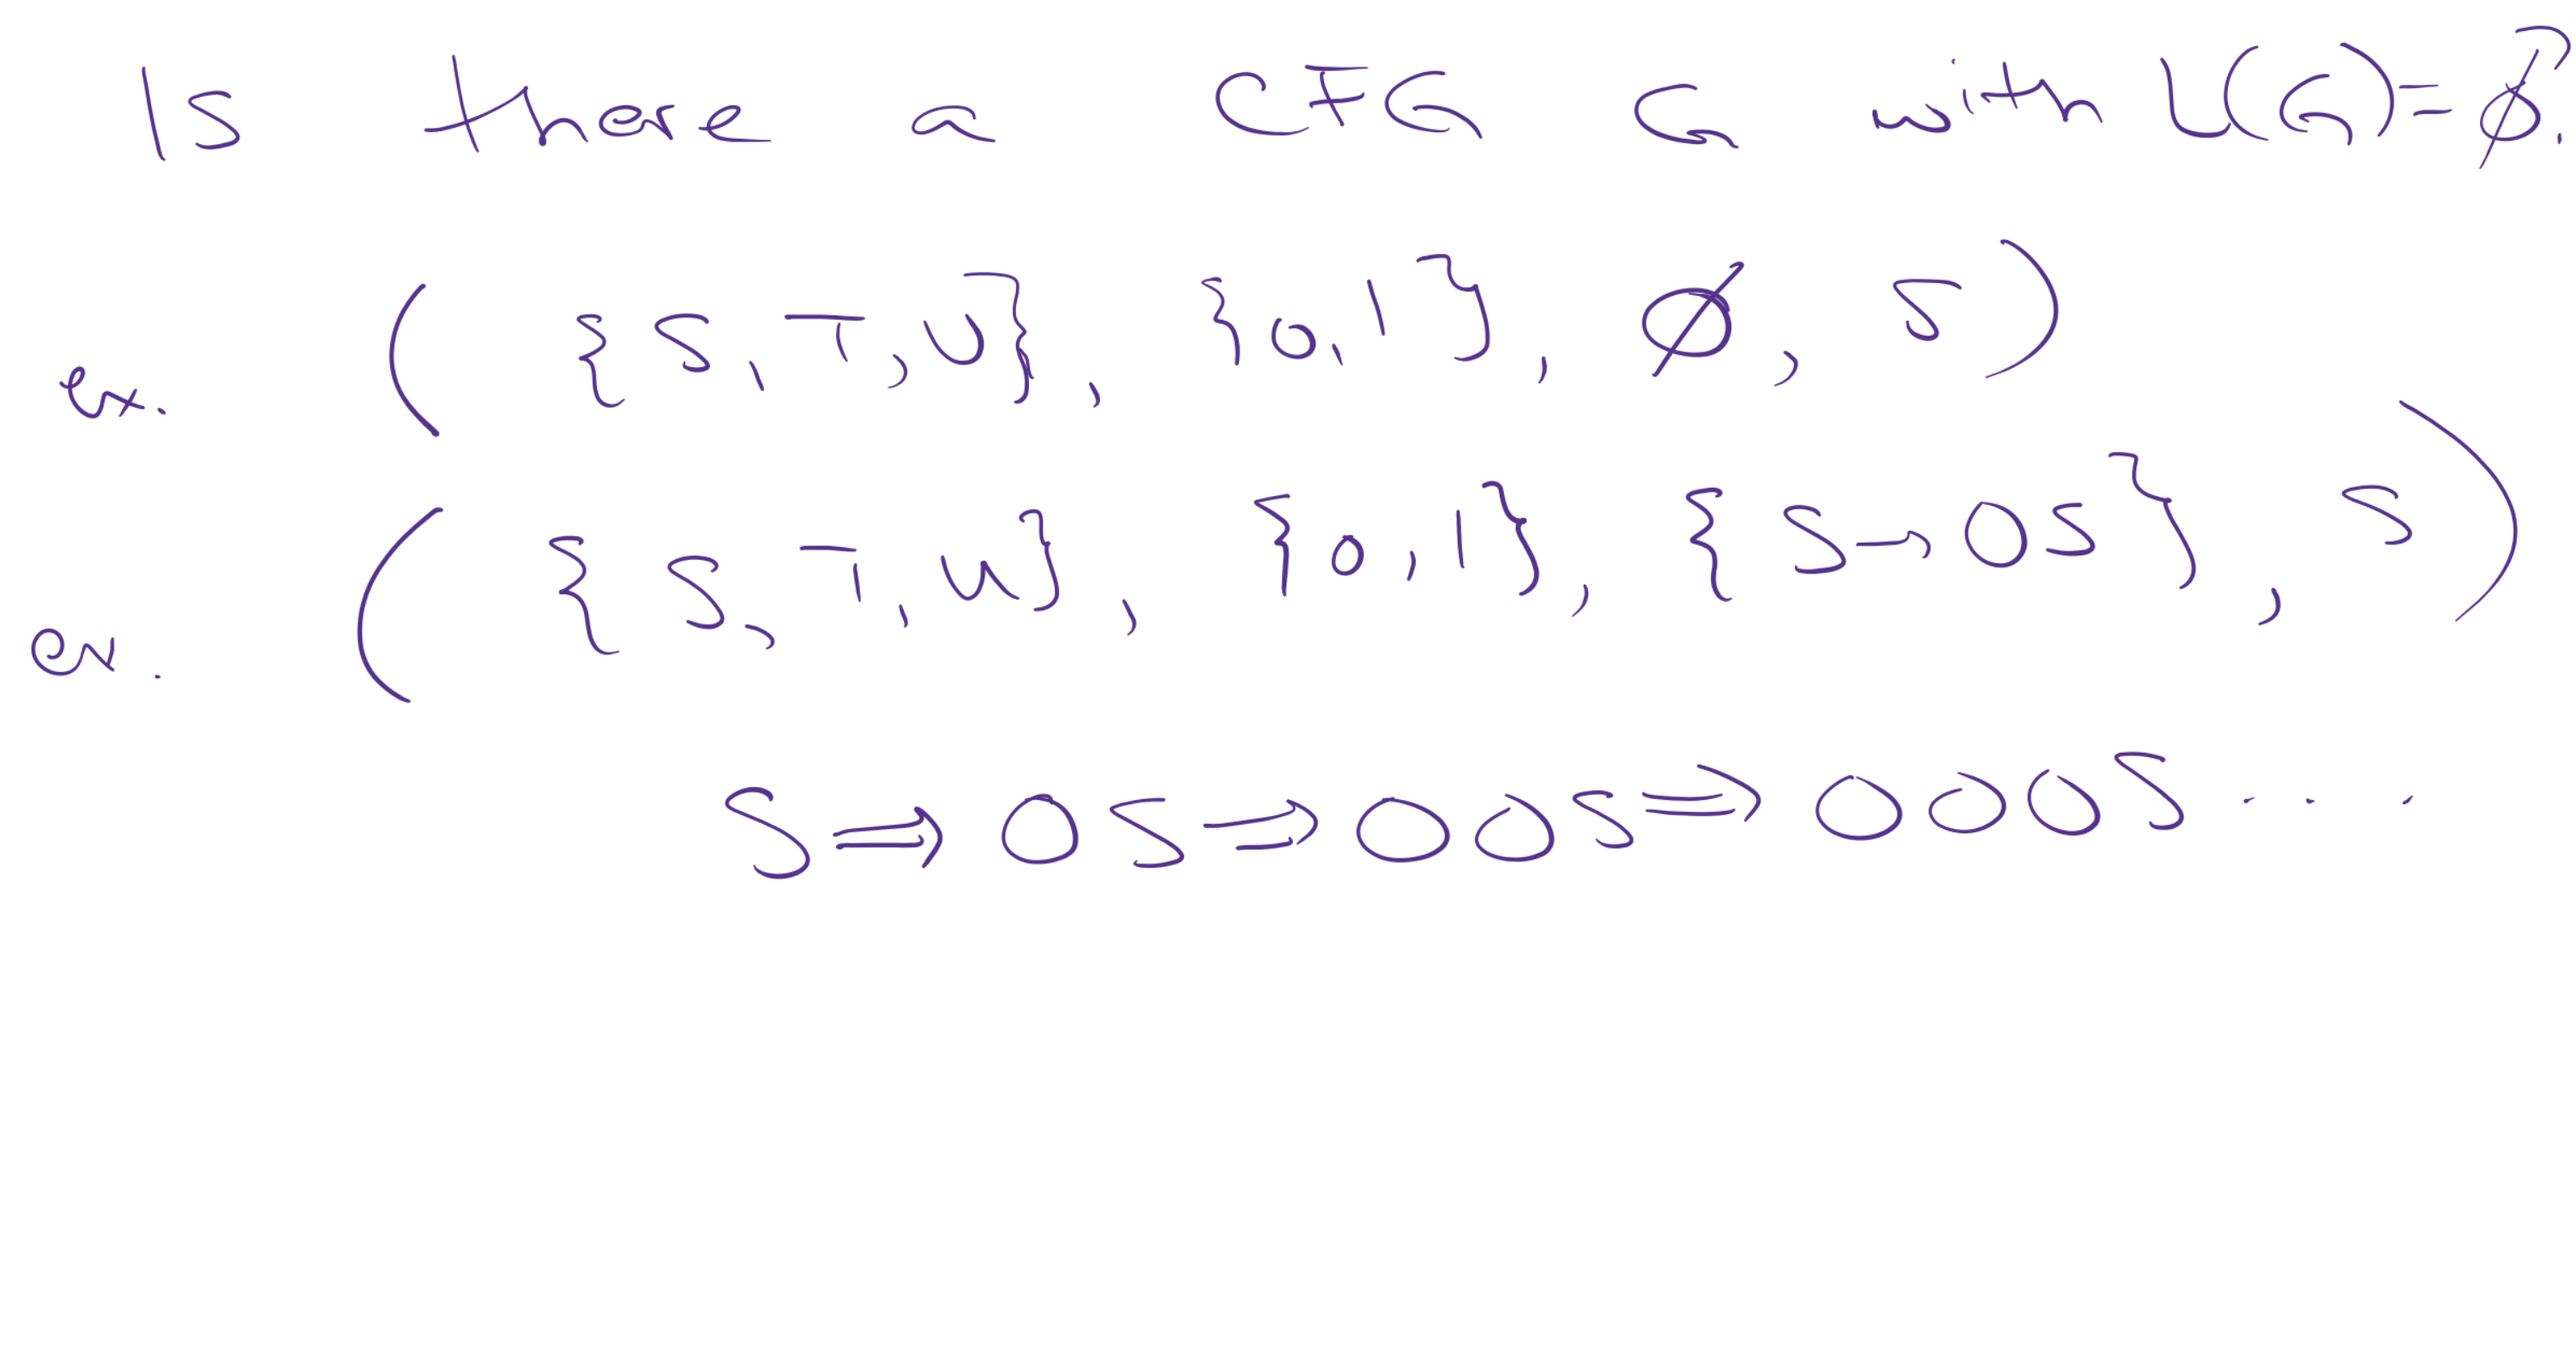 Is there a CFG G with L(G)=∅?
ex. ( {S,T,U}, {0,1}, ∅, S)
ex. ( {S,T,U}, {0,1}, {S→0S}, S)
S⇒0S⇒00S⇒000S...